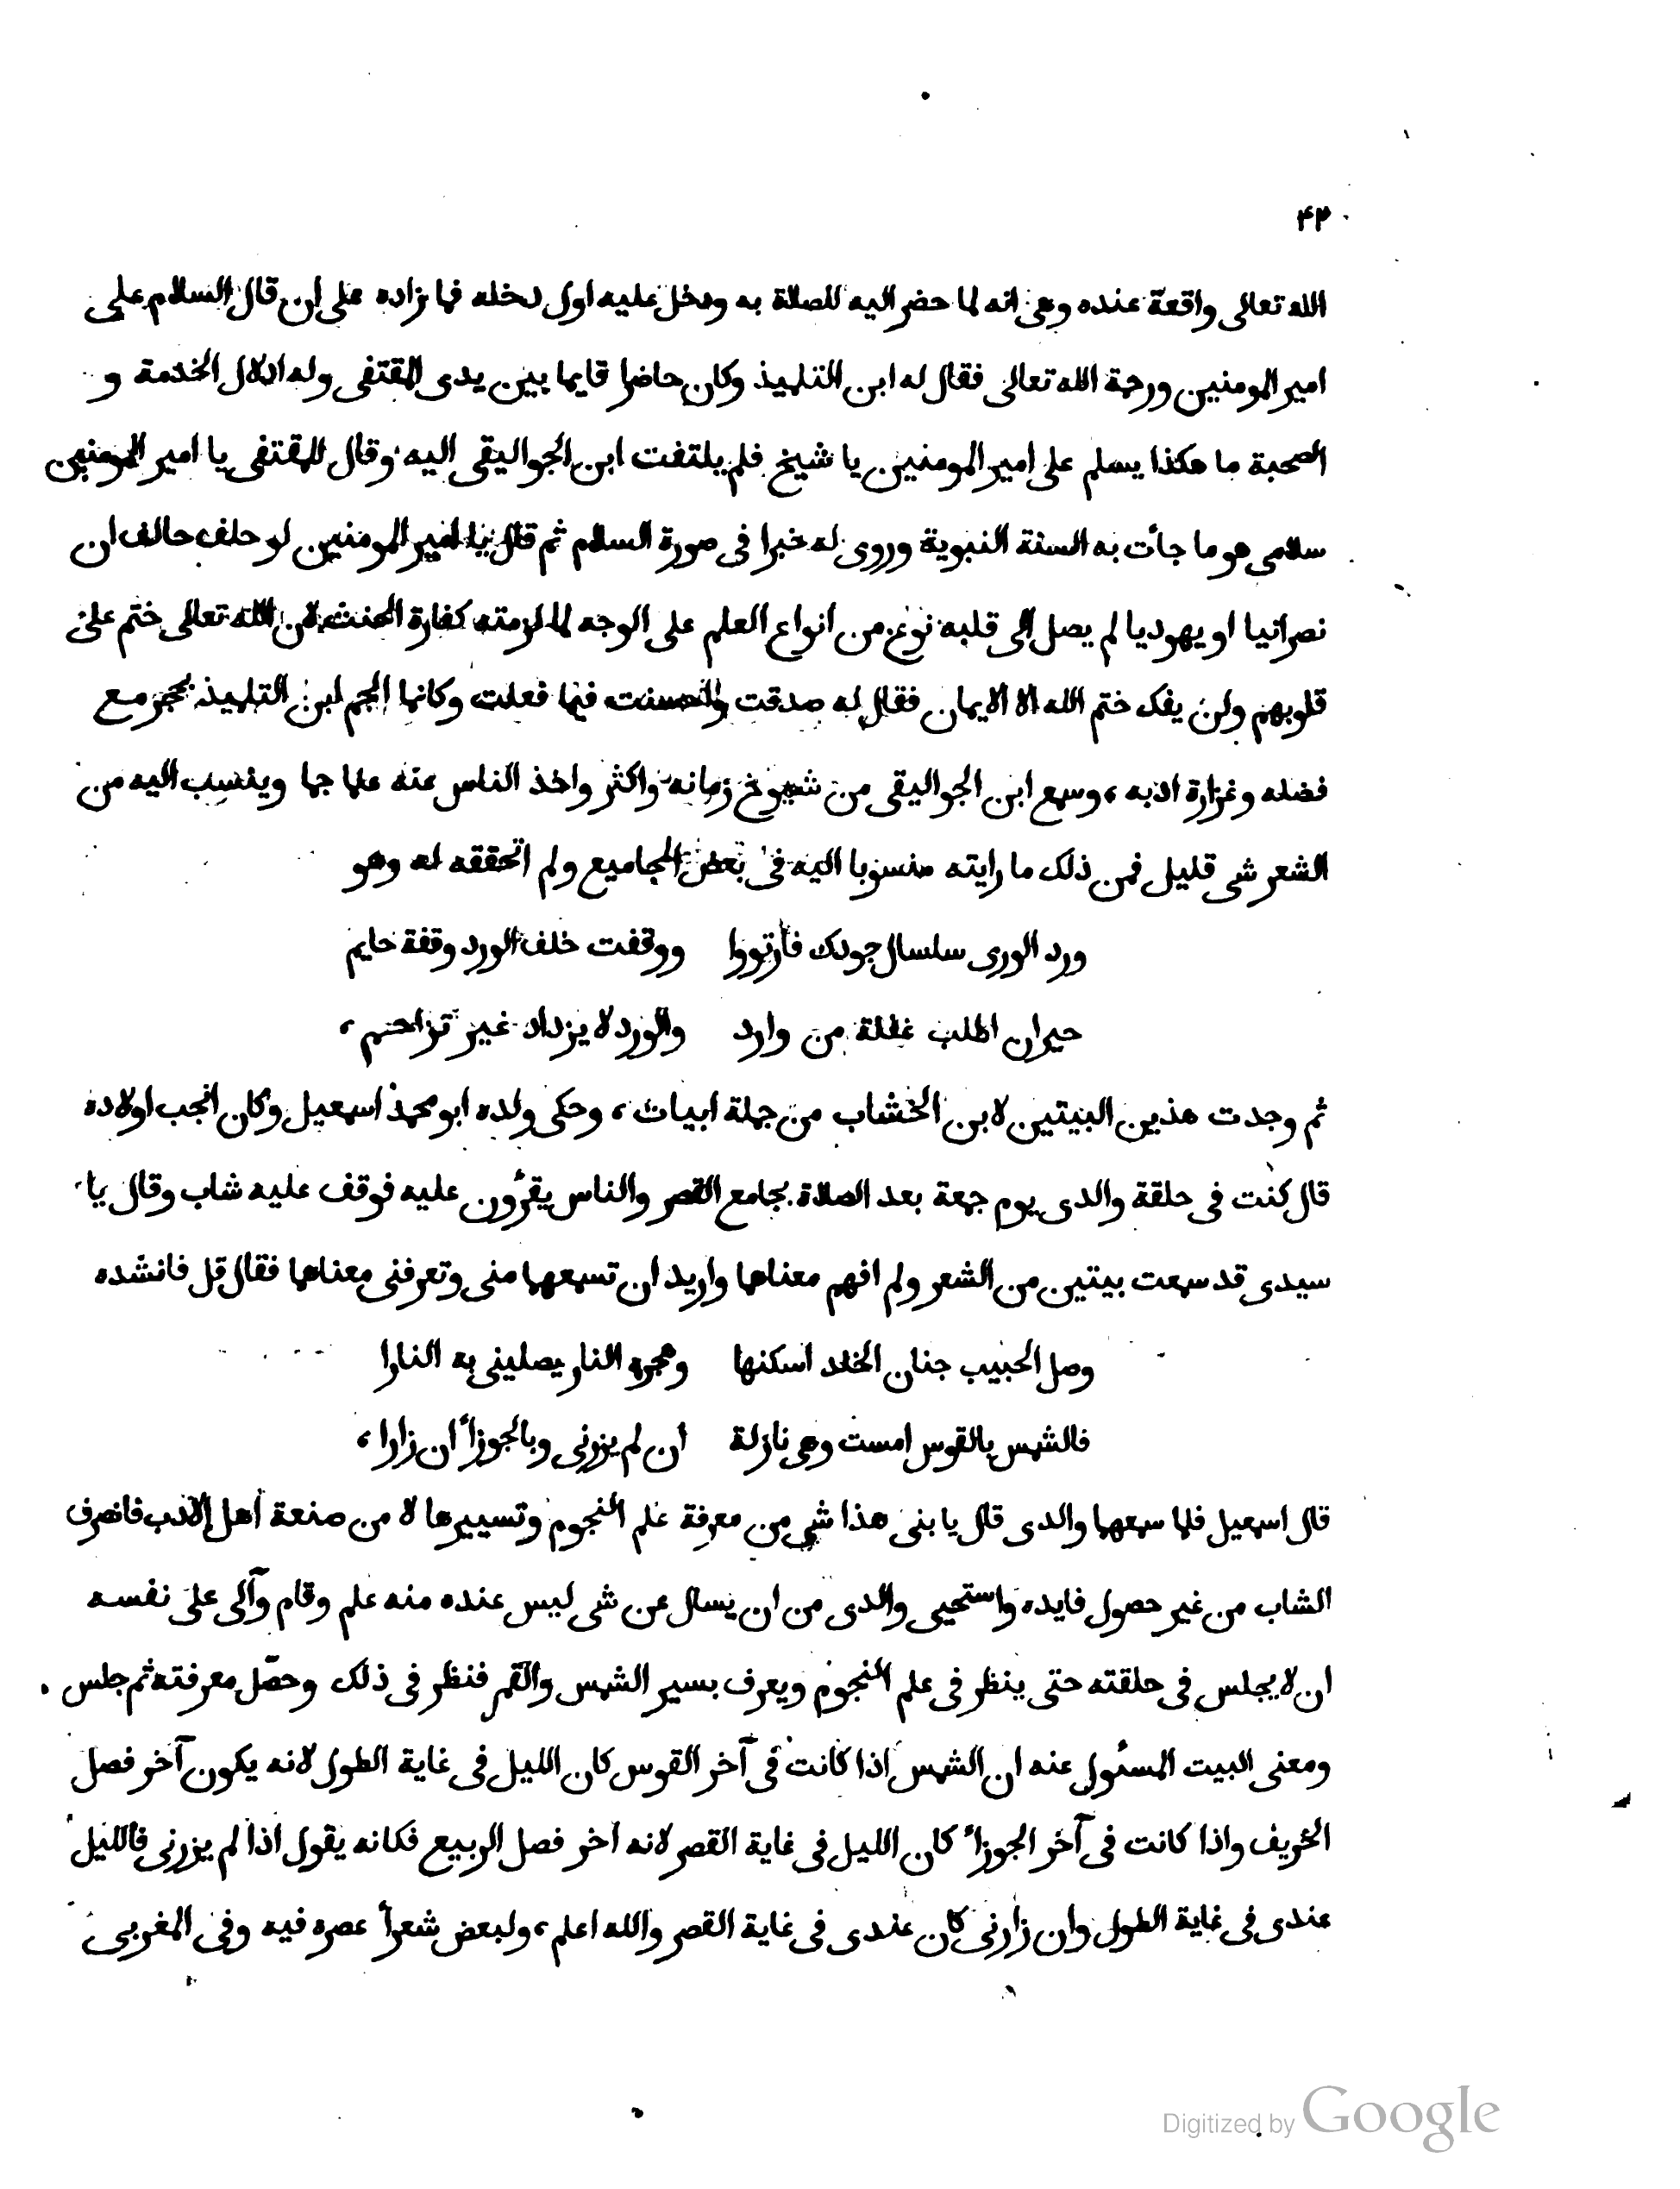 ۴۳
الله تعالى واقعة عنده وهى انه لما حضر اليه للصلاة به ودخل عليه اول دخله فما زاده على ان قال السلام على
امير المومنين ورحمة الله تعالى فقال له ابن التلميذ وكان حاضرا قايما بين يدى المقتفى وله ادلال الخدمة و
الصحبة ما هكذا يسلم على امير المومنين يا شيخ فلم يلتفت ابن الجواليقى اليه وقال للمقتفى يا امير المومنين
سلامى هو ما جأت به السنة النبوية وروى له خبرا فى صورة السلام ثم قال يا امير المومنين لو حلف حالف ان
نصرانيا او يهوديا لم يصل الى قلبه نوع من انواع العلم على الوجه لما لزمته كفارة الحنث لان الله تعالى ختم على
قلوبهم ولن يفك ختم الله الا الايمان فقال له صدقت واحسنت فيما فعلت وكانما الجم ابن التلميذ بحجر مع
فضله وغزارة ادبه ، وسمع ابن الجواليقى من شيوخ زمانه واكثر واخذ الناس عنه علما جما وينسب اليه من
الشعر شى قليل فمن ذلك ما رايته منسوبا اليه فى بعض المجاميع ولم اتحققه له وهو
ورد الورى سلسال جودك فأرتووا ووقفت خلف الورد وقفة حايم
حيران اطلب غفلة من وارد والورد لا يزداد غير تزاحم ،
ثم وجدت هذين البيتين لابن الخشاب من جملة ابيات ، وحكى ولده ابو محمد اسمعيل وكان انجب اولاده
قال كنت فى حلقة والدى يوم جمعة بعد الصلاة بجامع القصر والناس يقرؤن عليه فوقف عليه شاب وقال يا
سيدى قد سمعت بيتين من الشعر ولم افهم معناهما واريد ان تسمعهما منى وتعرفنى معناهما فقال قل فانشده
وصل الحبيب جنان الخلد اسكنها وهجره النار يصلينى به النارا
فالشمس بالقوس امست وهى نازلة ان لم يزرنى وبالجوزأ ان زارا ،
قال اسمعيل فلما سمعهما والدى قال يا بنى هذا شى من معرفة علم النجوم وتسييرها لا من صنعة أهل الادب فانصرف
الشاب من غير حصول فايده واستحيى والدى من ان يسال عن شى ليس عنده منه علم وقام وآلى على نفسه
ان لا يجلس فى حلقته حتى ينظر فى علم النجوم ويعرف بسير الشمس والقمر فنظر فى ذلك وحصّل معرفته ثم جلس .
ومعنى البيت المسئول عنه ان الشمس اذا كانت فى آخر القوس كان الليل فى غاية الطول لانه يكون آخر فصل
الخريف واذا كانت فى آخر الجوزأ كان الليل فى غاية القصر لانه اخر فصل الربيع فكانه يقول اذا لم يزرنى فالليل
عندى فى غاية الطول وان زارنى كان عندى فى غاية القصر والله اعلم ، ولبعض شعرأ عصره فيه وفى المغربى
Digitized by Google